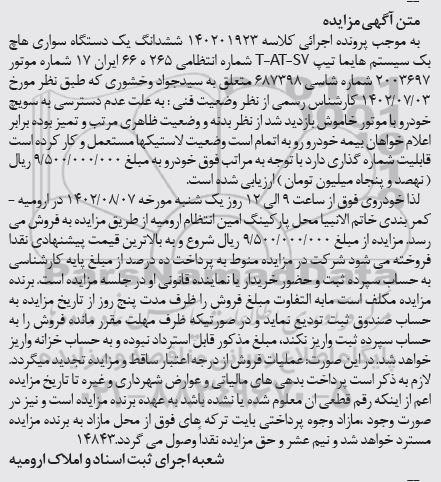 متن آگهی مزایده
به موجب پرونده اجرائی کلاسه ۱۴۰۲۰۱۹۲۳ ششدانگ یک دستگاه سواری هاچ
بک سیستم هایما تیپ T-AT-S۷ شماره انتظامی ۲۶۵ ه ۶۶ ایران ۱۷ شماره موتور
۲۰۰۳۶۹۷ شماره شاسی ۶۸۷۳۹۸ متعلق به سیدجواد وخشوری که طبق نظر مورخ
۱۴۰۲/۰۷/۰۳ کارشناس رسمی از نظر وضعیت فنی : به علت عدم دسترسی به سویچ
خودرو با موتور خاموش بازدید شد از نظر بدنه و وضعیت ظاهری مرتب و تمیز بوده برابر
اعلام خواهان بیمه خودرو رو به اتمام است وضعیت لاستیکها مستعمل و کار کرده است
قابلیت شماره گذاری دارد با توجه به مراتب فوق خودرو به مبلغ ۹/۵۰۰/۰۰۰/۰۰۰ ریال
(نهصد و پنجاه میلیون تومان) ارزیابی شده است.
لذا خودروی فوق از ساعت ۹ الی ۱۲ روز یک شنبه مورخه ۱۴۰۲/۰۸/۰۷ در ارومیه -
کمربندی خاتم الانبیا محل پارکینگ امین انتظام ارومیه از طریق مزایده به فروش می
رسد. مزایده از مبلغ ۹/۵۰۰/۰۰۰/۰۰۰ ریال شروع و به بالاترین قیمت پیشنهادی نقدا
فروخته می شود شرکت در مزایده منوط به پرداخت ده درصد از مبلغ پایه کارشناسی
به حساب سپرده ثبت و حضور خریدار یا نماینده قانونی او در جلسه مزایده است. برنده
مزایده مکلف است مابه التفاوت مبلغ فروش را ظرف مدت پنج روز از تاریخ مزایده به
حساب صندوق ثبت تودیع نماید و در صورتیکه ظرف مهلت مقرر مانده فروش را به
حساب سپرده ثبت واریز نکند، مبلغ مذکور قابل استرداد نبوده و به حساب خزانه واریز
خواهد شد. در این صورت، عملیات فروش از درجه اعتبار ساقط و مزایده تجدید میگردد.
لازم به ذکر است پرداخت بدهی های مالیاتی و عوارض شهرداری و غیره تا تاریخ مزایده
اعم از اینکه رقم قطعی ان معلوم شده یا نشده باشد به عهده برنده مزایده است و نیز در
صورت وجود ،مازاد وجوه پرداختی بابت ترکه های فوق از محل مازاد به برنده مزایده
مسترد خواهد شد و نیم عشر و حق مزایده نقداً وصول می گردد.۱۴۸۴۳
شعبه اجرای ثبت اسناد و املاک ارومیه